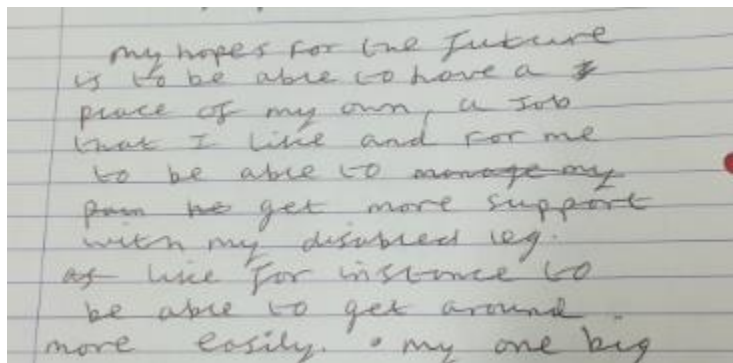 my hopes for the future
is to be able to have a
place of my own, a Job
that I like and for me
to be able to manage my
pain he get more support
with my disabled leg.
as like for instance to
be able to get around
more easily. my one big